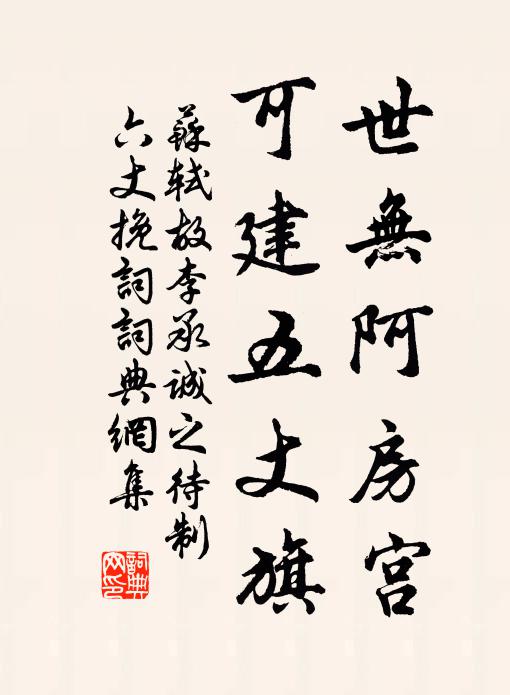 世無阿房宮
可建五丈旗
蘇軾故李承誠之待制
六丈挽詞詞典網集
詞典網印